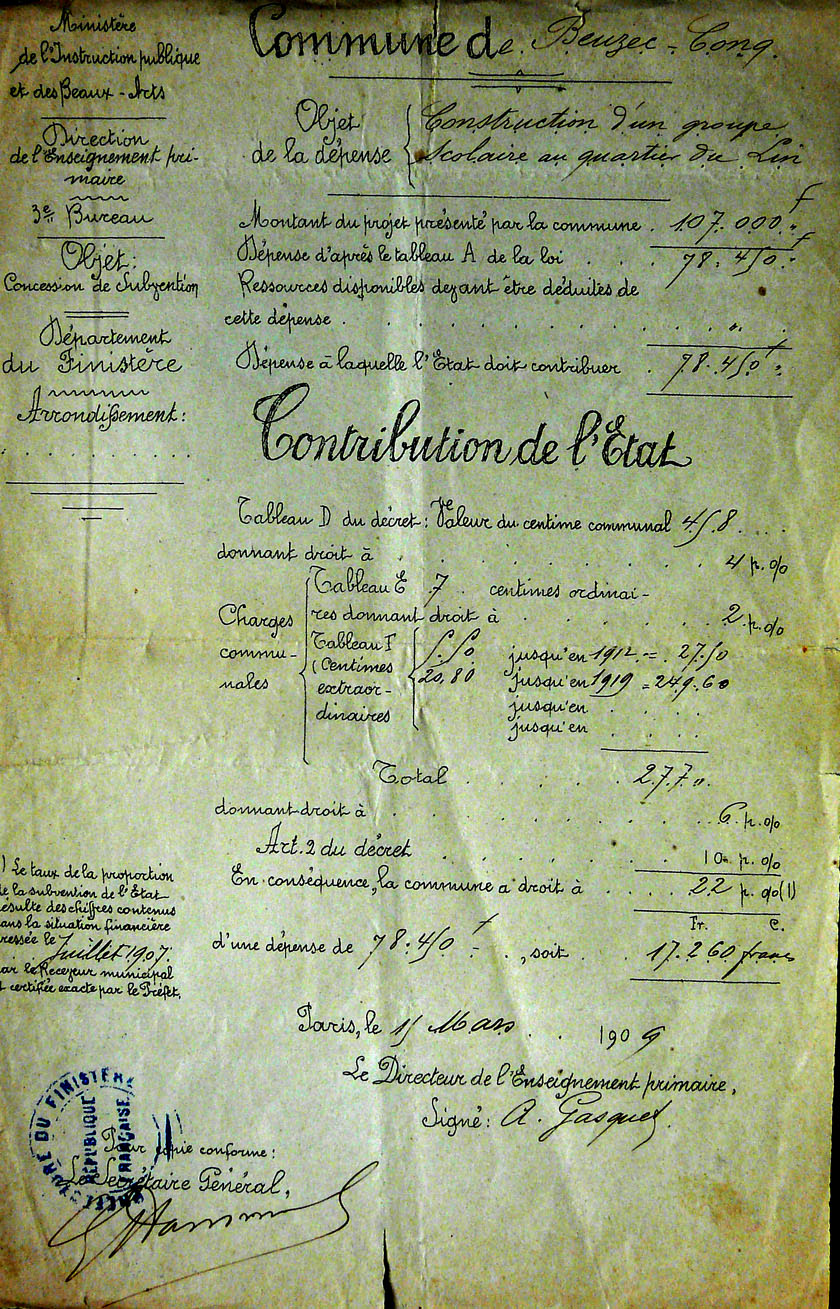 Ministère
de l'Instruction publique
et des Beaux-Arts
Direction
de l'Enseignement pri-
maire
3e Bureau
Objet:
Concession de Subvention
Département
du Finistère
Arrondissement:
Commune de Beuzec-Conq.
Objet
de la dépense
Construction d'un groupe
scolaire au quartier du Lin
Montant du projet présenté par la commune . 107.000 f "
Dépense d'après le tableau A de la loi . . . 78.450 f "
Ressources disponibles devant être déduites de
cette dépense . . . . . . . . "
Dépense à laquelle l'Etat doit contribuer . 78.450 f "
Contribution de l'Etat
Tableau D du décret: Valeur du centime communal 458 . . .
donnant droit à . . . . . . . 4 p. %
Charges
commu-
nales
Tableau E 7 . centimes ordinai-
res donnant droit à . . . . . 2 p. %
Tableau F
(Centimes
extraor-
dinaires
5.50 jusqu'en 1912 = 27.50
20,80 jusqu'en 1919 = 249.60
jusqu'en . . .
jusqu'en . . .
Total . . . . . 277 "
donnant droit à . . . . . . . 6 p. %
Art. 2 du décret . . . . . . 10 p. %
En conséquence, la commune a droit à . . . . 22 p. % (1)
Fr. C.
d'une dépense de 78.450 f - . , soit . . . 17.260 francs
) Le taux de la proportion
de la subvention de l'Etat
résulte des chiffres contenus
dans la situation financière
dressée le Juillet 1907.
par le Receveur municipal
et certifiée exacte par le Préfet.
Paris, le 15 Mars . . 1909
Le Directeur de l'Enseignement primaire,
Signé: A. Gasquet
Pour copie conforme:
Le Secrétaire Général,
PRÉFECTURE DU FINISTÈRE
RÉPUBLIQUE
FRANÇAISE